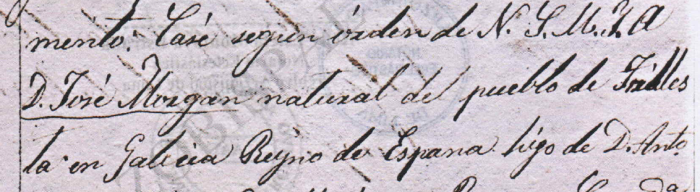 mento: Casé según órden de N. S. M. I. A
D. José Morgan natural del pueblo de
ta en Galicia Reyno de Espana higo de D. Anto